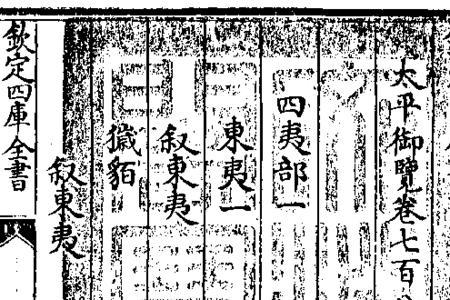 太平御覽卷七百
四夷部一
東夷一
叙東夷
獩貊
叙東夷
欽定四庫全書